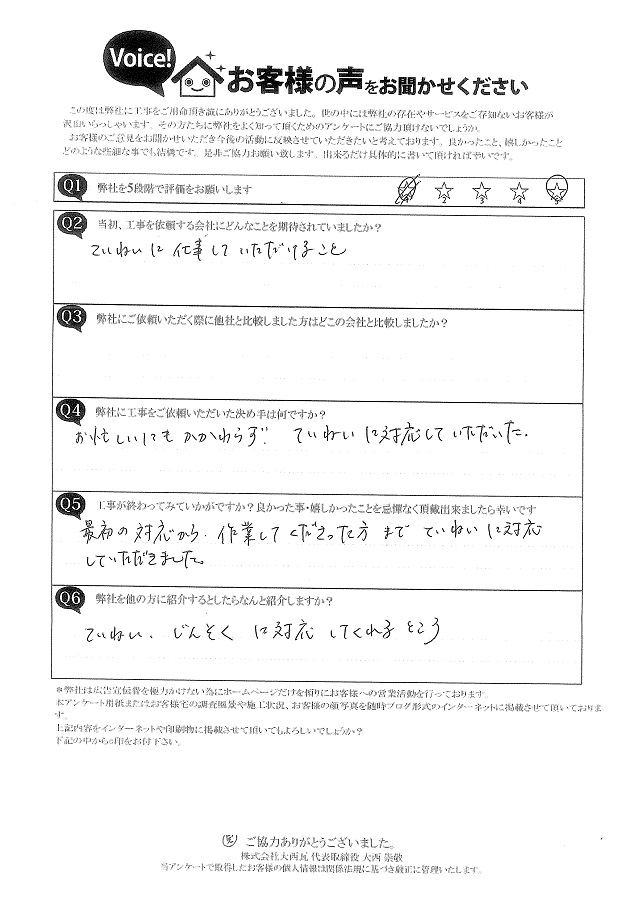 Voice!
お客様の声をお聞かせください
この度は弊社に工事をご用命頂き誠にありがとうございました。世の中には弊社の存在やサービスをご存知ないお客様が
沢山いらっしゃいます。その方たちに弊社をよく知って頂くためのアンケートにご協力頂けないでしょうか。
お客様のご意見をお聞かせいただき今後の活動に反映させていただきたいと考えております。良かったこと、嬉しかったこと
どのような些細な事でも結構です。是非ご協力お願い致します。出来るだけ具体的に書いて頂ければ幸いです。
Q1 弊社を5段階で評価をお願いします 2 3 4 5
Q2 当初、工事を依頼する会社にどんなことを期待されていましたか?
ていねいに仕事していただけること
Q3 弊社にご依頼いただく際に他社と比較しました方はどこの会社と比較しましたか?
Q4 弊社に工事をご依頼いただいた決め手は何ですか?
お忙しいにもかかわらず、ていねいに対応していただいた。
Q5 工事が終わってみていかがですか?良かった事・嬉しかったことを忌憚なく頂戴出来ましたら幸いです
最初の対応から、作業してくださった方までていねいに対応
していただきました。
Q6 弊社を他の方に紹介するとしたらなんと紹介しますか?
ていねい、じんそくに対応してくれるところ
*弊社は広告宣伝費を極力かけない為にホームページだけを頼りにお客様への営業活動を行っております。
本アンケート用紙またはお客様宅の調査風景や施工状況、お客様の顔写真を随時ブログ形式のインターネットに掲載させて頂いておりま
す。
上記内容をインターネットや印刷物に掲載させて頂いてもよろしいでしょうか?
下記の中から○印をお付下さい。
ご協力ありがとうございました。
株式会社大西瓦 代表取締役 大西 崇敬
当アンケートで取得したお客様の個人情報は関係法規に基づき厳正に管理いたします。